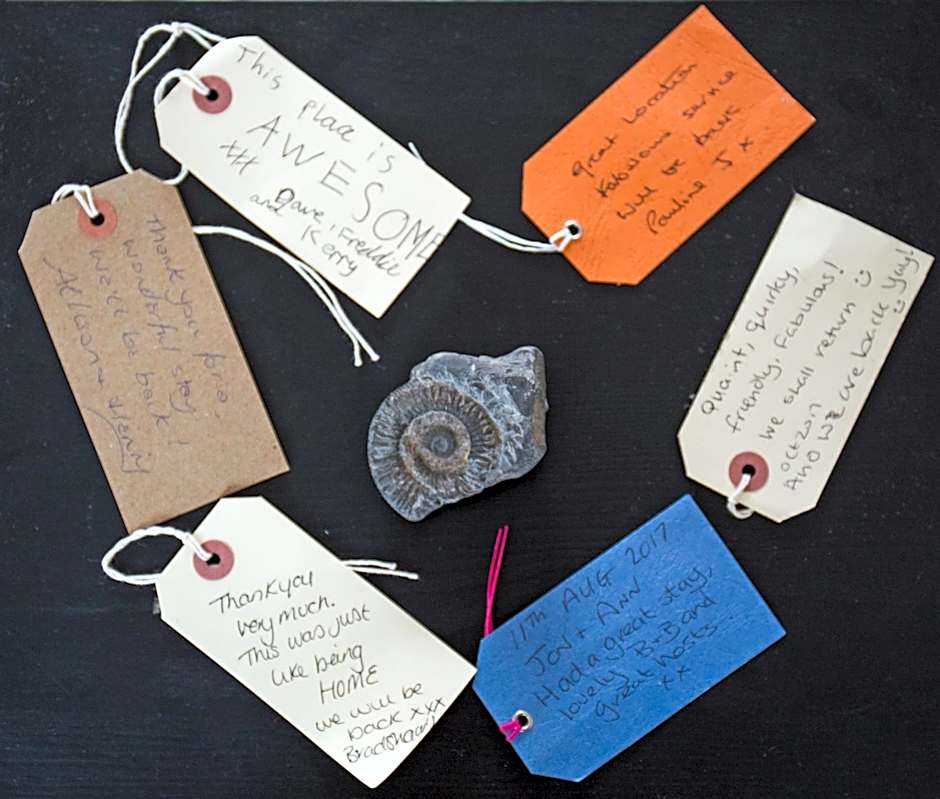 This
place is
AWESOME
xxx
Dave, Freddie
and Kerry
Great Location
Fabulous service
Will be back
Pauline J x
Thank you for a
wonderful stay
we'll be back!
Allison + Henry
Quaint, quirky,
friendly, fabulous!
we shall return ☺
oct 2017
And we are back Yay!
☺
Thank you
very much.
This was just
like being
HOME
we will be
back xxx
Bradshaw
11TH AUG 2017
JON + ANN
Had a great stay,
lovely B+B and
great hosts...
xx